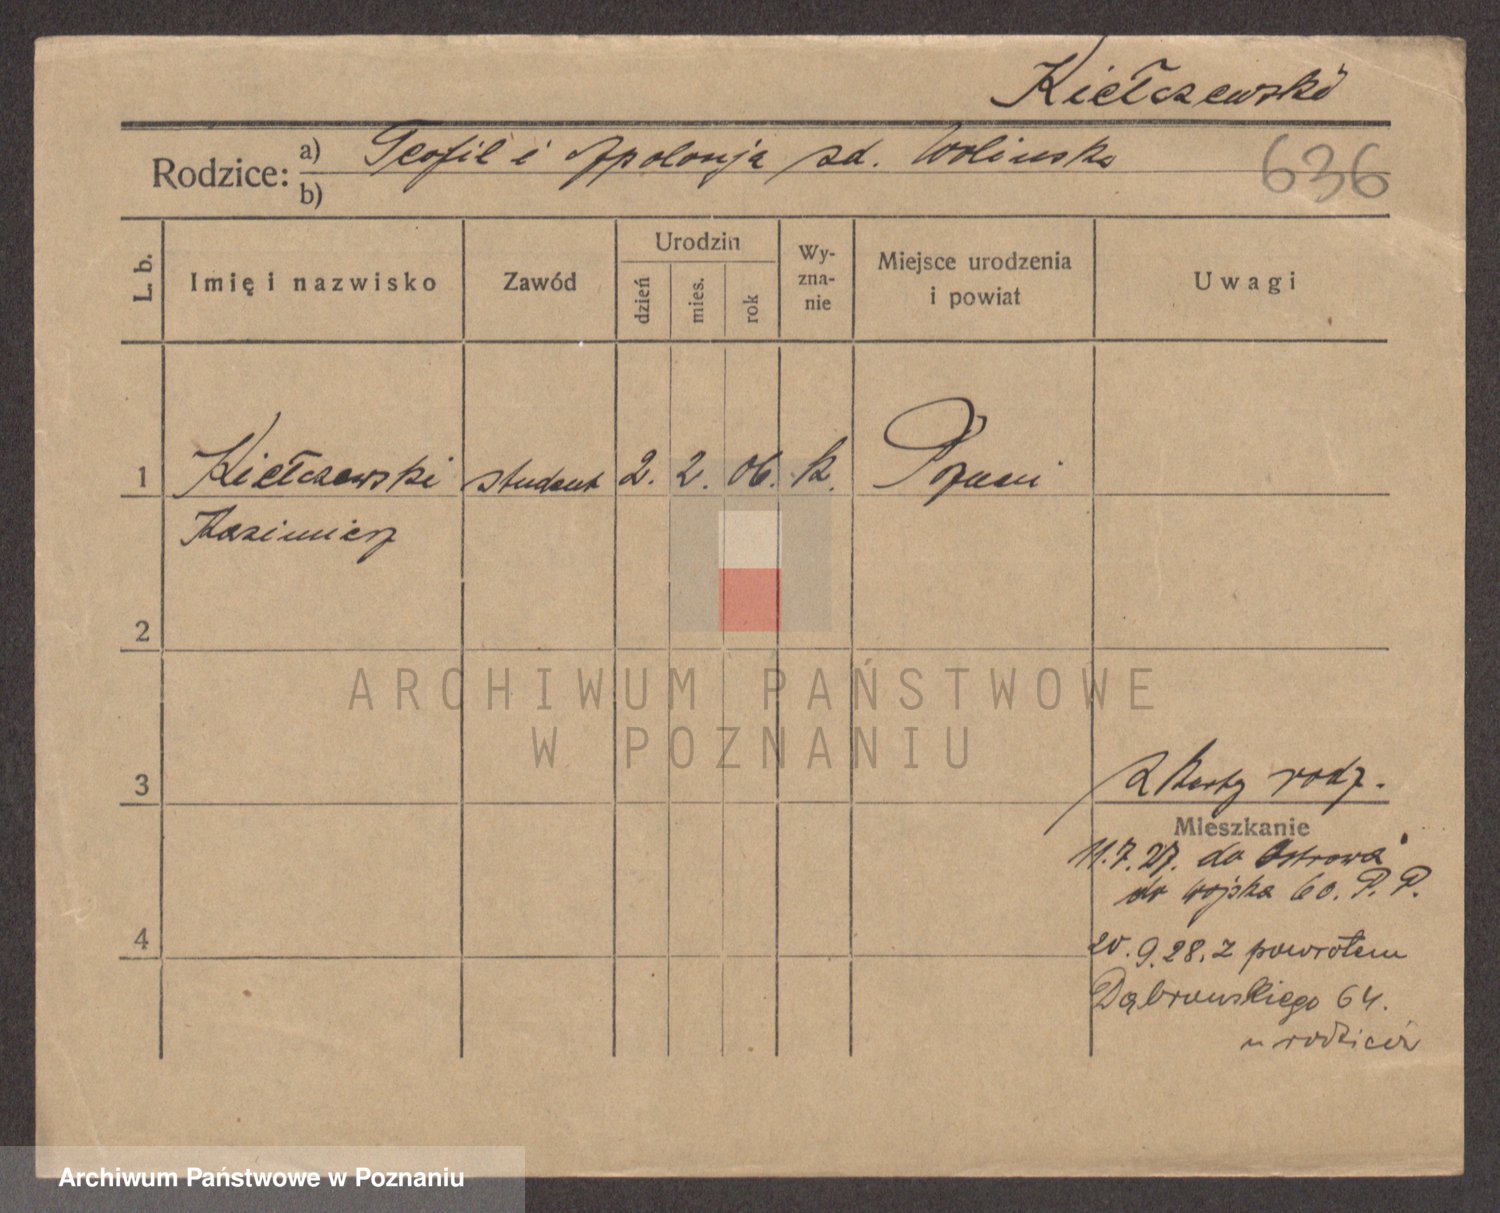 Kiełczewski
Rodzice: a) Teofil i Apolonja zd. Wolinska
b)
636
L. b.
Imię i nazwisko
Zawód
Urodzin
dzień
mies.
rok
Wy-
zna-
nie
Miejsce urodzenia
i powiat
Uwagi
1 Kiełczewski student 2. 2. 06. k. Poznań
Kazimierz
2
ARCHIWUM PAŃSTWOWE
W POZNANIU
3
z karty rodz.
Mieszkanie
11.7.27. do Ostrowa
do wojska 60. P. P.
4
20.9.28. z powrotem
Dąbrowskiego 64.
u rodziców
Archiwum Państwowe w Poznaniu